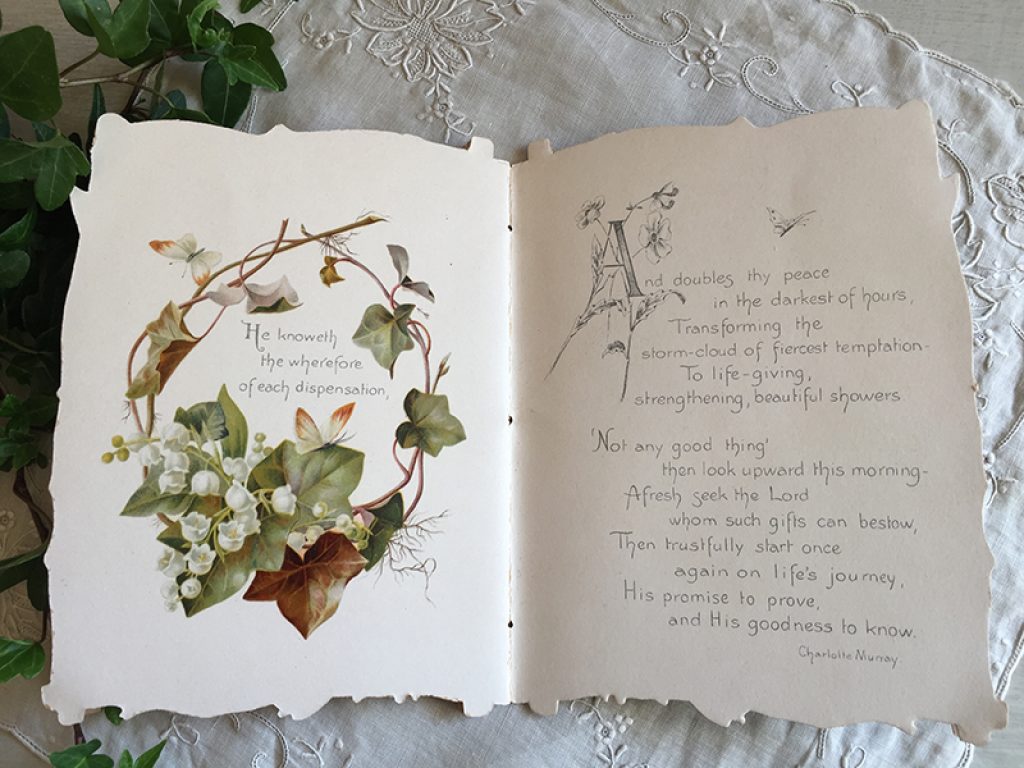 He knoweth
the wherefore
of each dispensation,
And doubles thy peace
in the darkest of hours,
Transforming the
storm-cloud of fiercest temptation-
To life-giving,
strengthening, beautiful showers
'Not any good thing'
then look upward this morning-
Afresh seek the Lord
whom such gifts can bestow,
Then trustfully start once
again on life's journey,
His promise to prove,
and His goodness to know.
Charlotte Murray